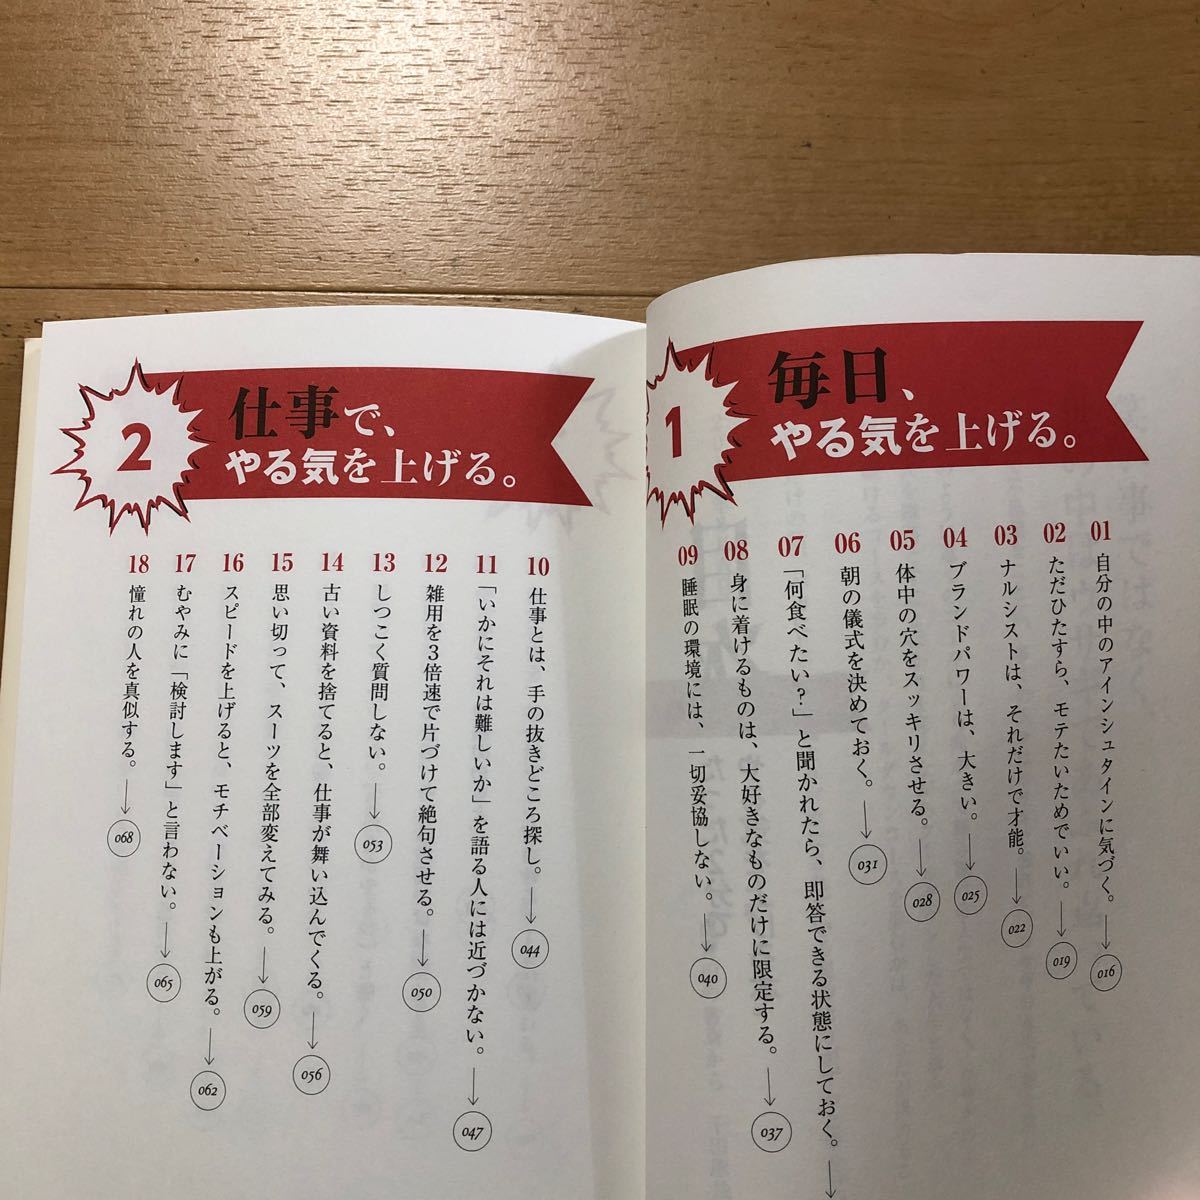 1
毎日、
やる気を上げる。
01 自分の中のアインシュタインに気づく。 016
02 ただひたすら、モテたいためでいい。 019
03 ナルシストは、それだけで才能。 022
04 ブランドパワーは、大きい。 025
05 体中の穴をスッキリさせる。 028
06 朝の儀式を決めておく。 031
07 「何食べたい?」と聞かれたら、即答できる状態にしておく。
08 身に着けるものは、大好きなものだけに限定する。 037
09 睡眠の環境には、一切妥協しない。 040
2
仕事で、
やる気を上げる。
10 仕事とは、手の抜きどころ探し。 044
11 「いかにそれは難しいか」を語る人には近づかない。 047
12 雑用を3倍速で片づけて絶句させる。 050
13 しつこく質問しない。 053
14 古い資料を捨てると、仕事が舞い込んでくる。 056
15 思い切って、スーツを全部変えてみる。 059
16 スピードを上げると、モチベーションも上がる。 062
17 むやみに「検討します」と言わない。 065
18 憧れの人を真似する。 068